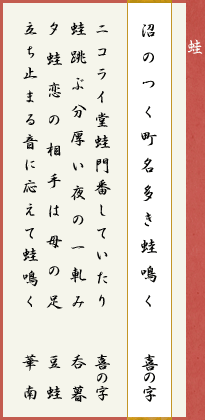 蛙
沼のつく町名多き蛙鳴く 喜の字
ニコライ堂蛙門番していたり 喜の字
蛙跳ぶ分厚い夜の一軋み 呑暮
夕蛙恋の相手は母の足 豆蛙
立ち止まる音に応えて蛙鳴く 華南